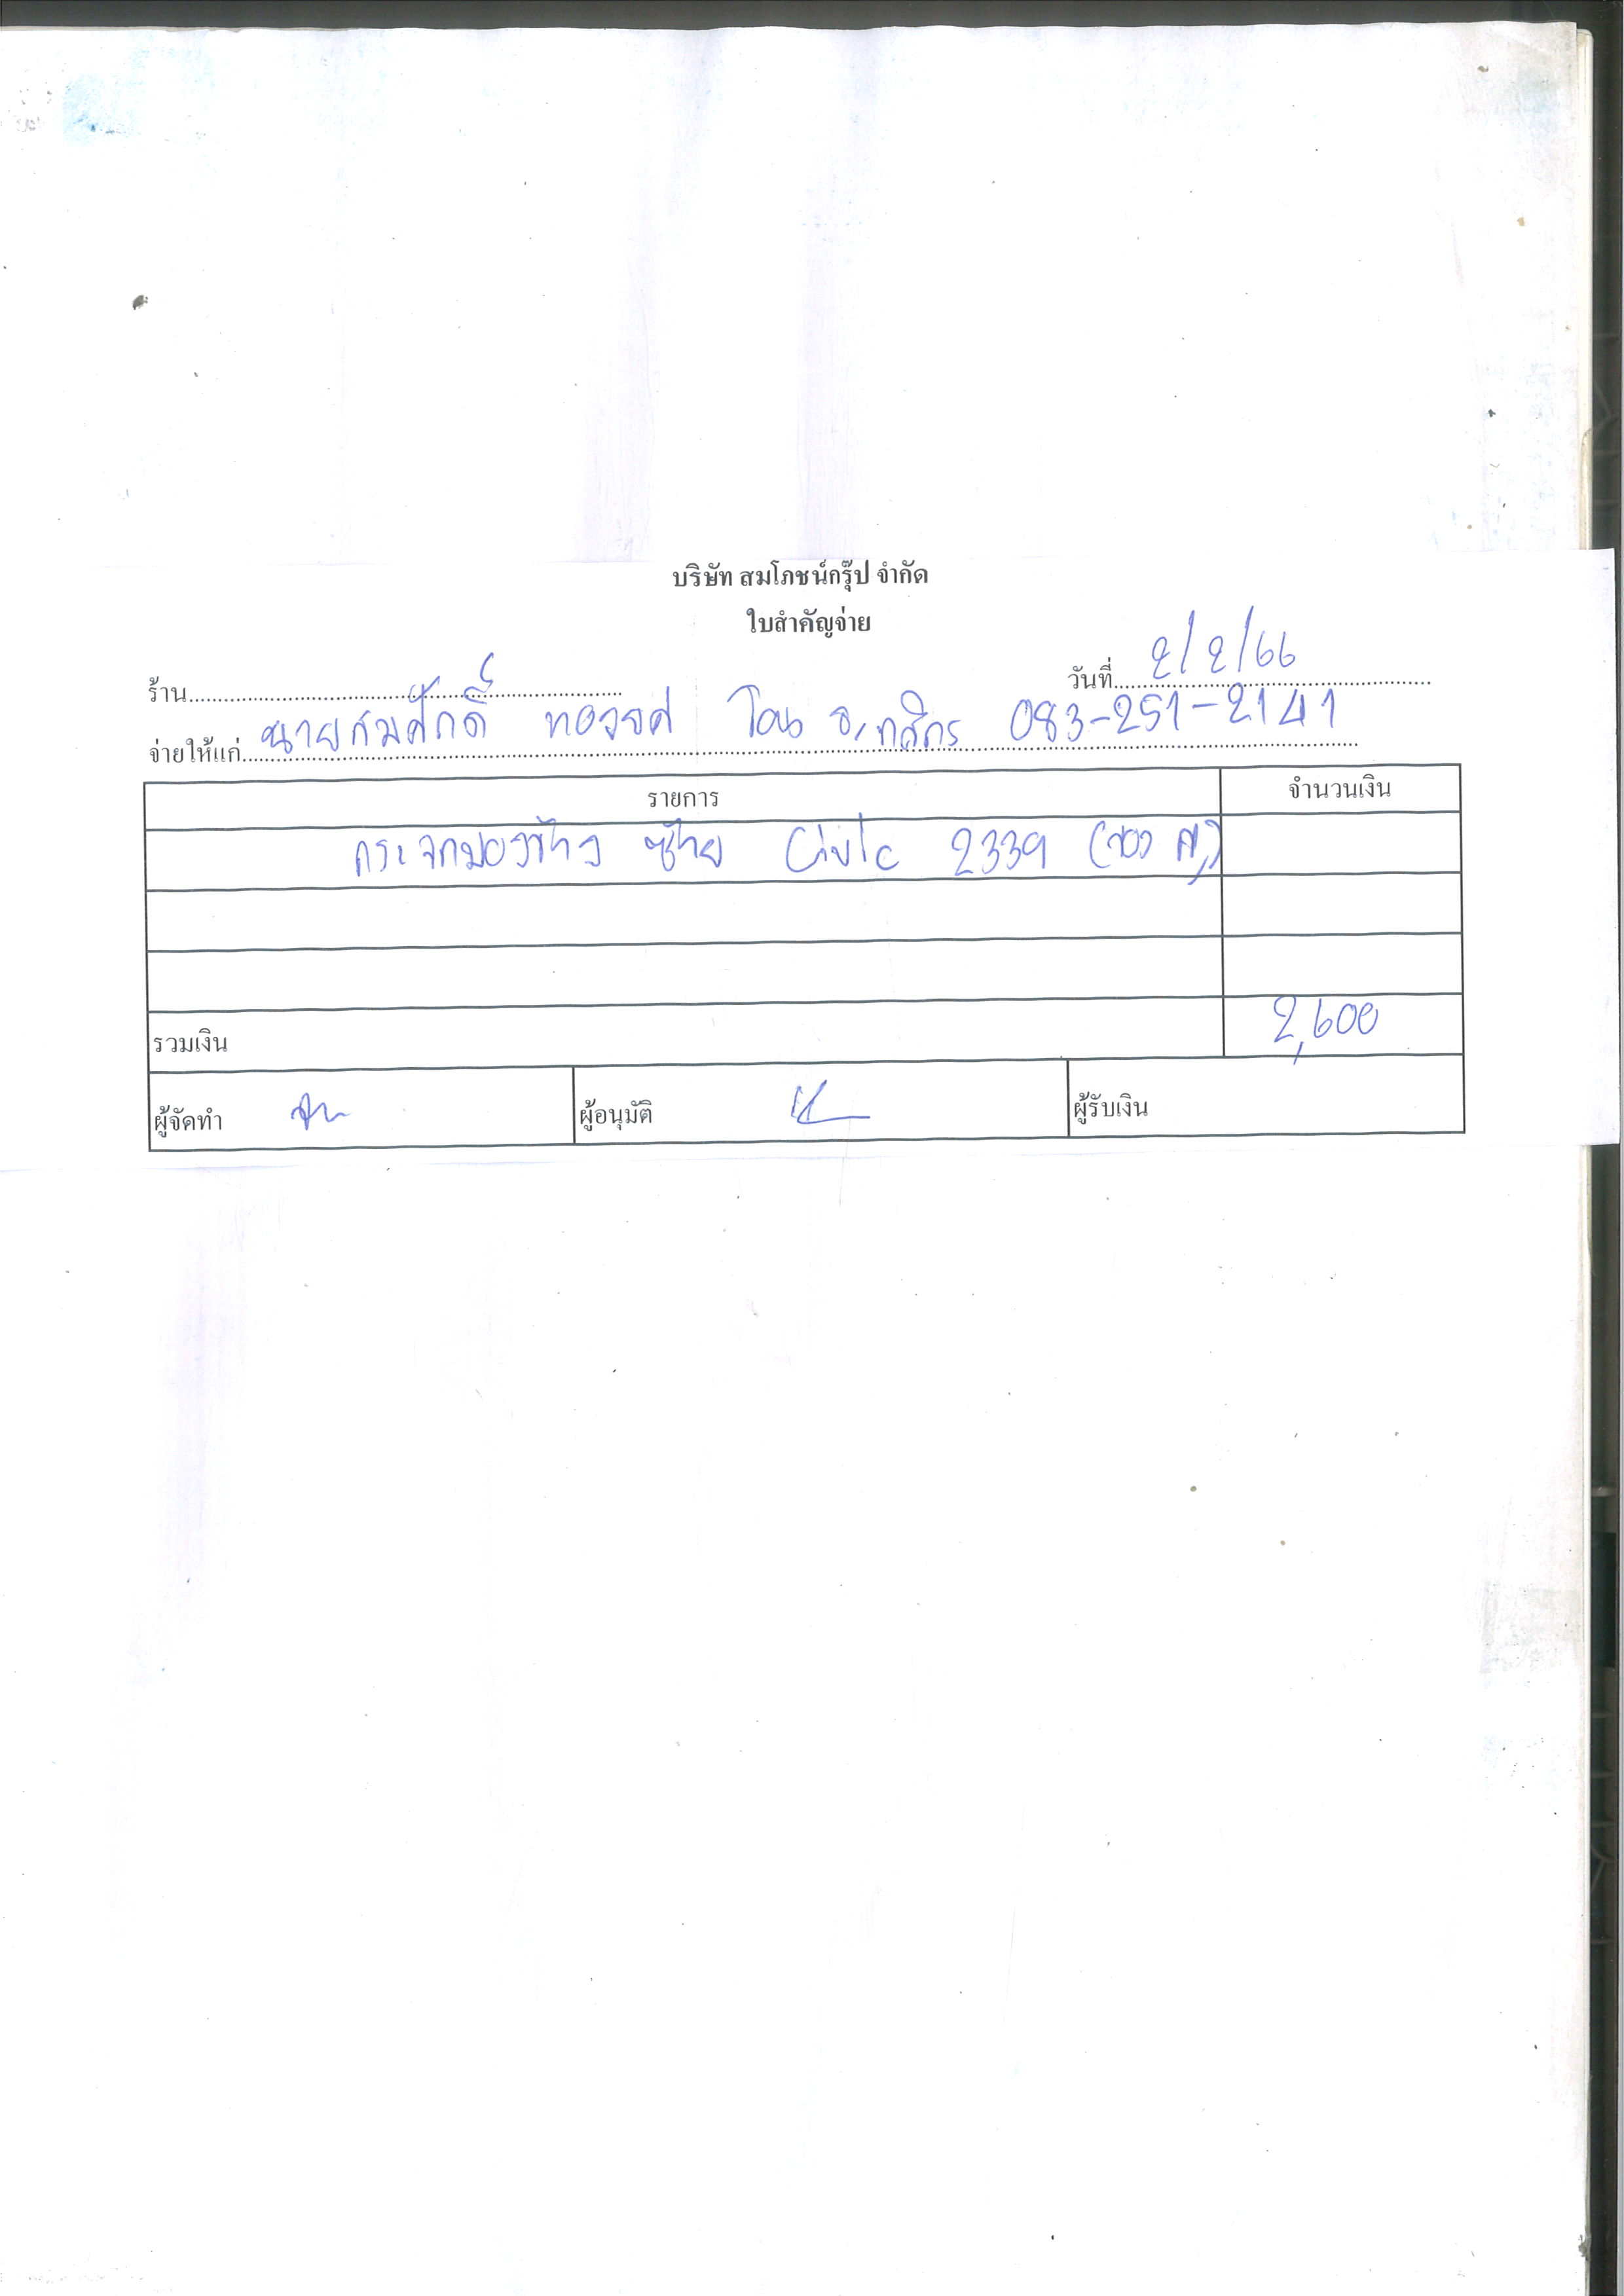 บริษัท สมโภชน์กรุ๊ป จำกัด
ใบสำคัญจ่าย
ร้าน
วันที่ 2/2/66
จ่ายให้แก่ นายสมศักดิ์ ทองวงศ์ โอน ธ.กสิกร 083-251-2141
รายการ จำนวนเงิน
กระจกมองข้าง ซ้าย Civic 2339 (ของ
รวมเงิน 2,600
ผู้จัดทำ ผู้อนุมัติ ผู้รับเงิน